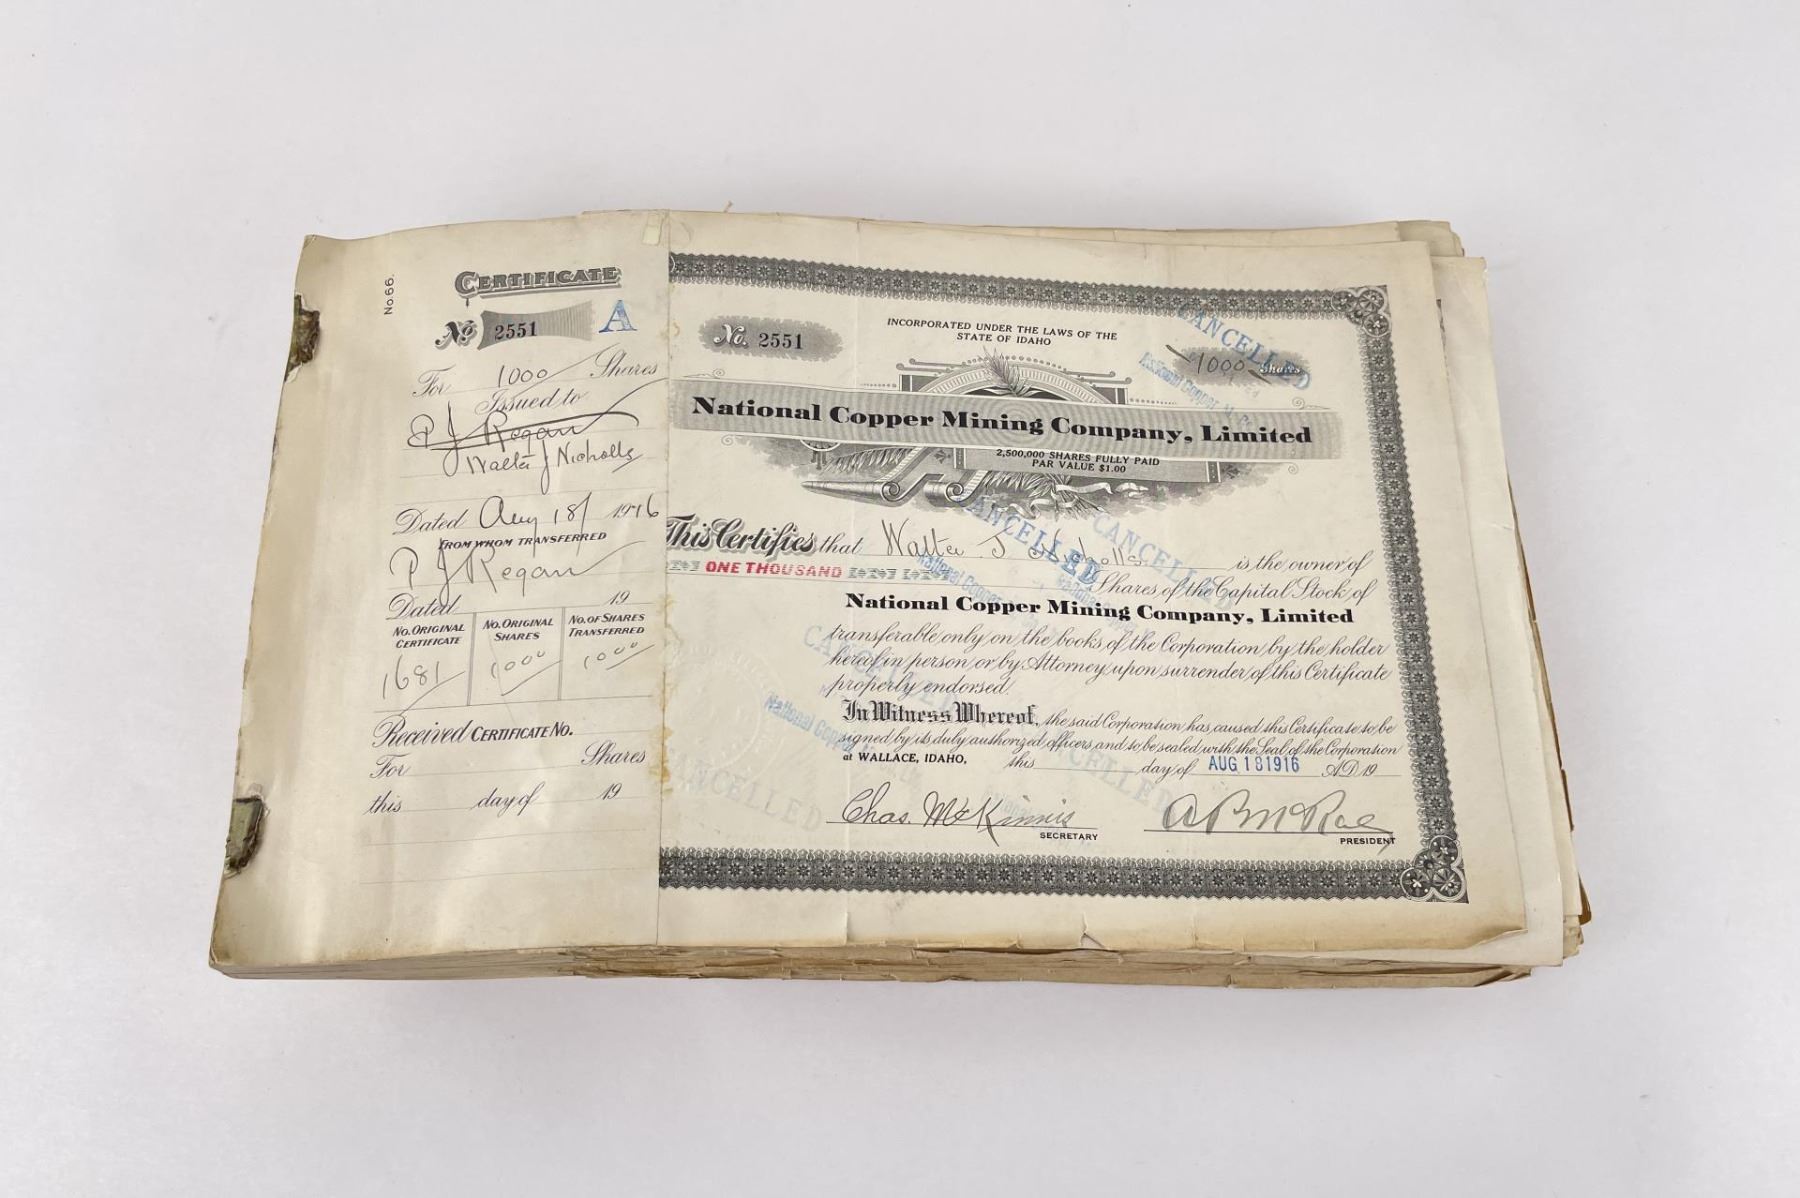 No. 66.
CERTIFICATE
No. 2551 A
For 1000 Shares
Issued to
P J Regan
Walter J Nicholls
Dated Aug 18/ 1916
FROM WHOM TRANSFERRED
P J Regan
Dated 19
No. ORIGINAL CERTIFICATE
No. ORIGINAL SHARES
No. OF SHARES TRANSFERRED
1681 1000 1000
Received CERTIFICATE No.
For Shares
this day of 19
No. 2551
INCORPORATED UNDER THE LAWS OF THE
STATE OF IDAHO
1000 Shares
CANCELLED
National Copper Mining Company, Limited
2,500,000 SHARES FULLY PAID
PAR VALUE $1.00
CANCELLED
CANCELLED
This Certifies that Walter J Nicholls is the owner of
ONE THOUSAND Shares of the Capital Stock of
National Copper
National Copper Mining Company, Limited
transferable only on the books of the Corporation by the holder
hereof in person or by Attorney upon surrender of this Certificate
properly endorsed.
CANCELLED
National Copper
In Witness Whereof, the said Corporation has caused this Certificate to be
signed by its duly authorized officers and to be sealed with the Seal of the Corporation
at WALLACE, IDAHO, this day of AUG 18 1916 A.D. 19
CANCELLED
CANCELLED
Chas. McKinnis
SECRETARY
A B McRae
PRESIDENT